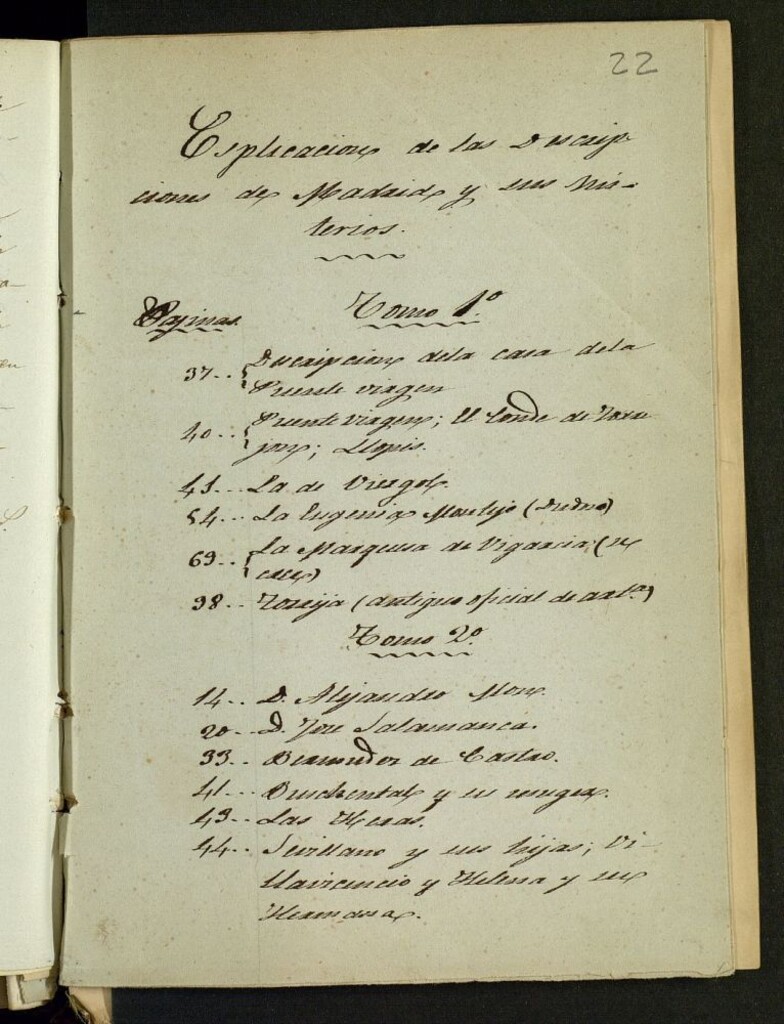 22
Esplicacion de las Descrip
ciones de Madrid y sus Mis-
terios.
Pajinas. Tomo 1º
37.. Descripcion dela casa dela
Puente virgen
40.. Puente virgen; El Conde de Tore
jon; Llopis.
43... La de Viesgo.
54... La Eugenia Montijo (Dudoso)
69.. La Marquesa de
98.. Torrija (antiguo oficial de artª)
Tomo 2º
14.. D. Alejandro Mon.
20.. D. Jose Salamanca.
33.. Bermudez de Castro.
41... Buschental y su muger.
43.. Las Heras.
44.. Sevillano y sus hijas; Vi-
llavicencio y Helena y su
Hermosa.